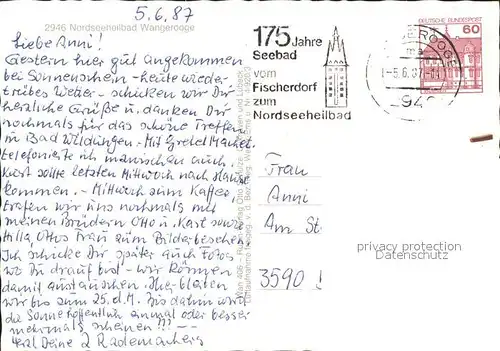 5.6.87
2946 Nordseeheilbad Wangerooge
Liebe Anni!
Gestern hier gut angekommen
bei Sonnenschein - heute wieder
trübes Wetter - schicken wir Dir
herzliche Grüße u. danken Dir
nochmals für das schöne Treffen
in Bad Wildungen. - Mit Gretel
telefonierte ich inzwischen auch.
Kurt sollte letzten Mittwoch nach Hause
kommen. - Mittwoch zum Kaffee
trafen wir uns nochmals mit
meinen Brüdern Otto u. Karl sowie
Hilla, Ottos Frau zum Bilderbesehen.
Ich schicke Dir später auch Fotos
wo Du drauf bist - wir können
damit austauschen. Hier bleiben
wir bis zum 25. d.M. Bis dahin wird
die Sonne hoffentlich anmal oder besser
mehrmals scheinen!!! -
Deine 2 Rademachers
175 Jahre
Seebad
vom
Fischerdorf
zum
Nordseeheilbad
DEUTSCHE BUNDESPOST
60
-5.6.87
94
Frau
Anni
Am St.
3590
privacy protection
Datenschutz